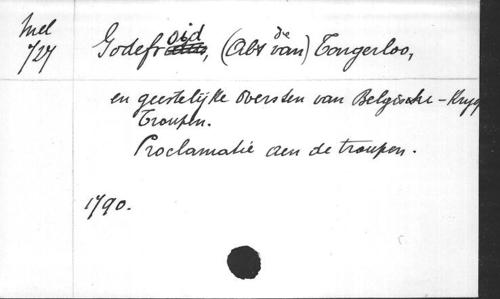 Mel
727
Godefroid, (Abt van de) Tongerloo,
en geestelijke oversten van Belgische-Kryg
Troupen.
Proclamatie aen de troupen.
1790.